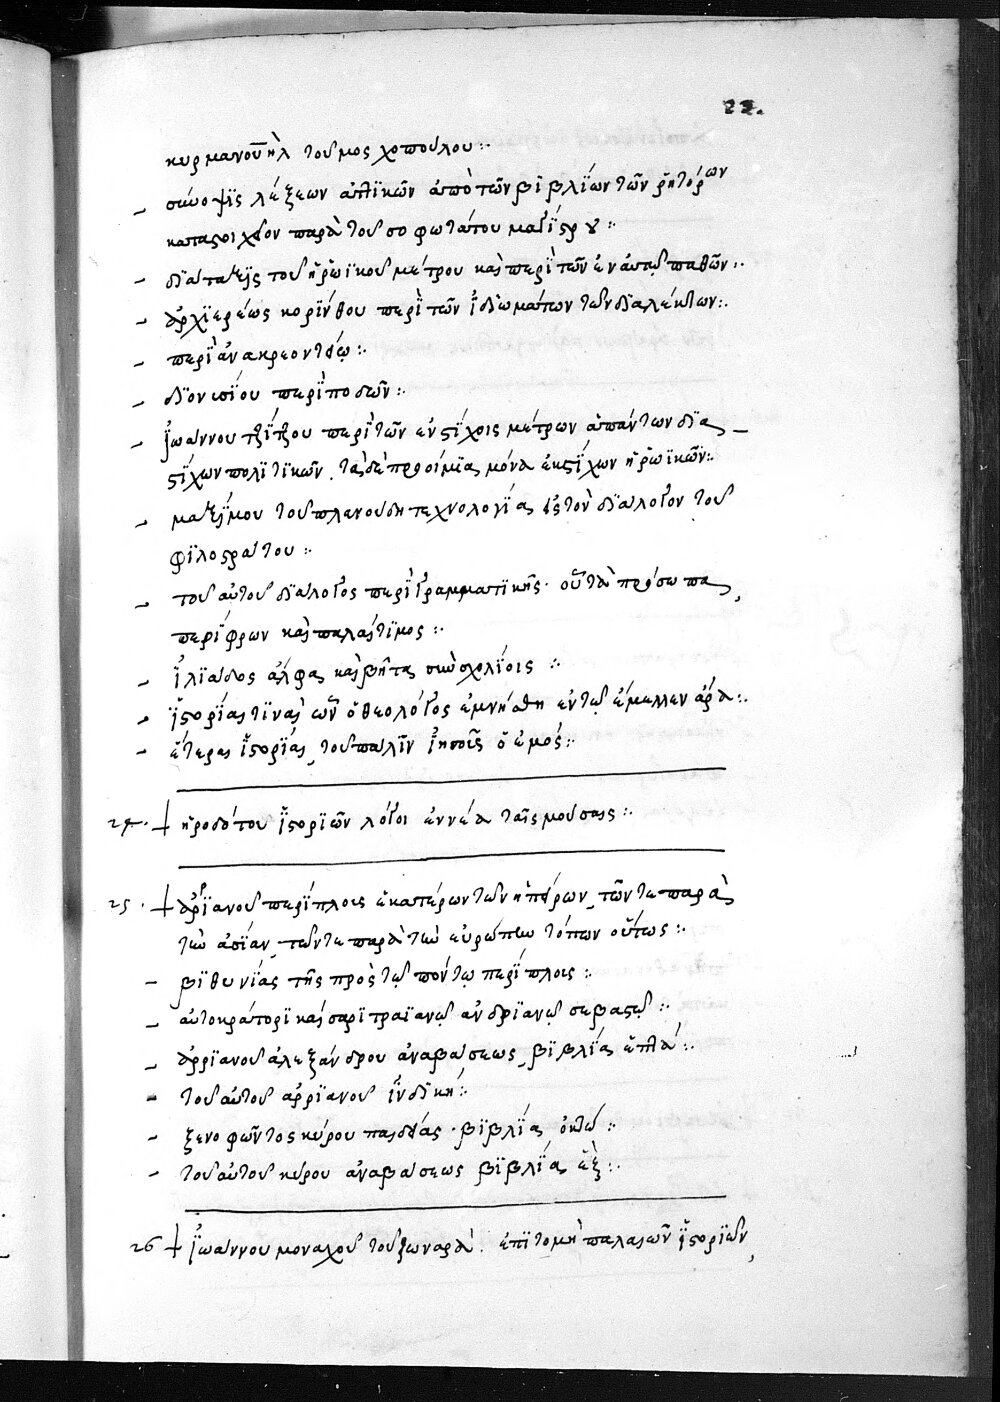 22.
κυρ μανουὴλ τοῦ μοσχοπούλου :·
– σύνοψις λέξεων ἀττικῶν ἀπὸ τῶν βιβλίων τῶν ῥητόρων
κατὰ στοιχεῖον παρὰ τοῦ σοφωτάτου μαγίστρου :
– διάταξις τοῦ ἡρωϊκοῦ μέτρου καὶ περὶ τῶν ἐν αὐτῷ παθῶν :·
– ἀρχιερέως κορίνθου περὶ τῶν ἰδιωμάτων τῶν διαλέκτων :·
– περὶ ἀνακρεοντείῳ :·
– διονυσίου περὶ ποδῶν :·
– ἰωάννου τζέτζου περὶ τῶν ἐν στίχοις μέτρων ἁπάντων διὰ –
στίχων πολιτικῶν, τὰ δὲ προοίμια μόνα ἐκ στίχων ἡρωϊκῶν :·
– μαξίμου τοῦ πλανούδη τεχνολογία εἰς τὸν διάλογον τοῦ
φιλοστράτου :·
– τοῦ αὐτοῦ διάλογος περὶ γραμματικῆς· οὗ τὰ πρόσωπα,
περίφρων καὶ παλαίτιμος :·
– ἰλιάδος ἄλφα καὶ βῆτα σὺν σχολίοις :·
– ἱστορίας τινὰς ὧν ὁ θεολόγος ἐμνήσθη ἐν τῷ ἔμελλεν ἄρα :·
– ἕτερας ἱστορίας, τοῦ πάλιν ἰησοῦς ὁ ἐμός :·
24· + ἡροδότου ἱστοριῶν λόγοι ἐννέα ταῖς μούσαις :·
25· + ἀρριανοῦ περίπλους ἑκατέρων τῶν ἠπείρων, τῶν τε παρὰ
τὴν ἀσίαν, τῶν τε παρὰ τὴν εὐρώπην τόπων οὕτως :·
– βιθυνίας τῆς πρὸς τῷ πόντῳ περίπλους :·
– αὐτοκράτορι καίσαρι τραϊανῷ ἀνδριανῷ σεβαστῷ :·
– ἀρριανοῦ ἀλεξάνδρου ἀναβάσεως, βιβλία ἑπτά :·
– τοῦ αὐτοῦ ἀρριανοῦ ἰνδική :·
– ξενοφῶντος κύρου παιδείας· βιβλία ὀκτώ :·
– τοῦ αὐτοῦ κύρου ἀναβάσεως βιβλία ἕξ :·
26 + ἰωάννου μοναχοῦ τοῦ ζωναρᾶ. ἐπιτομὴ παλαιῶν ἱστοριῶν,